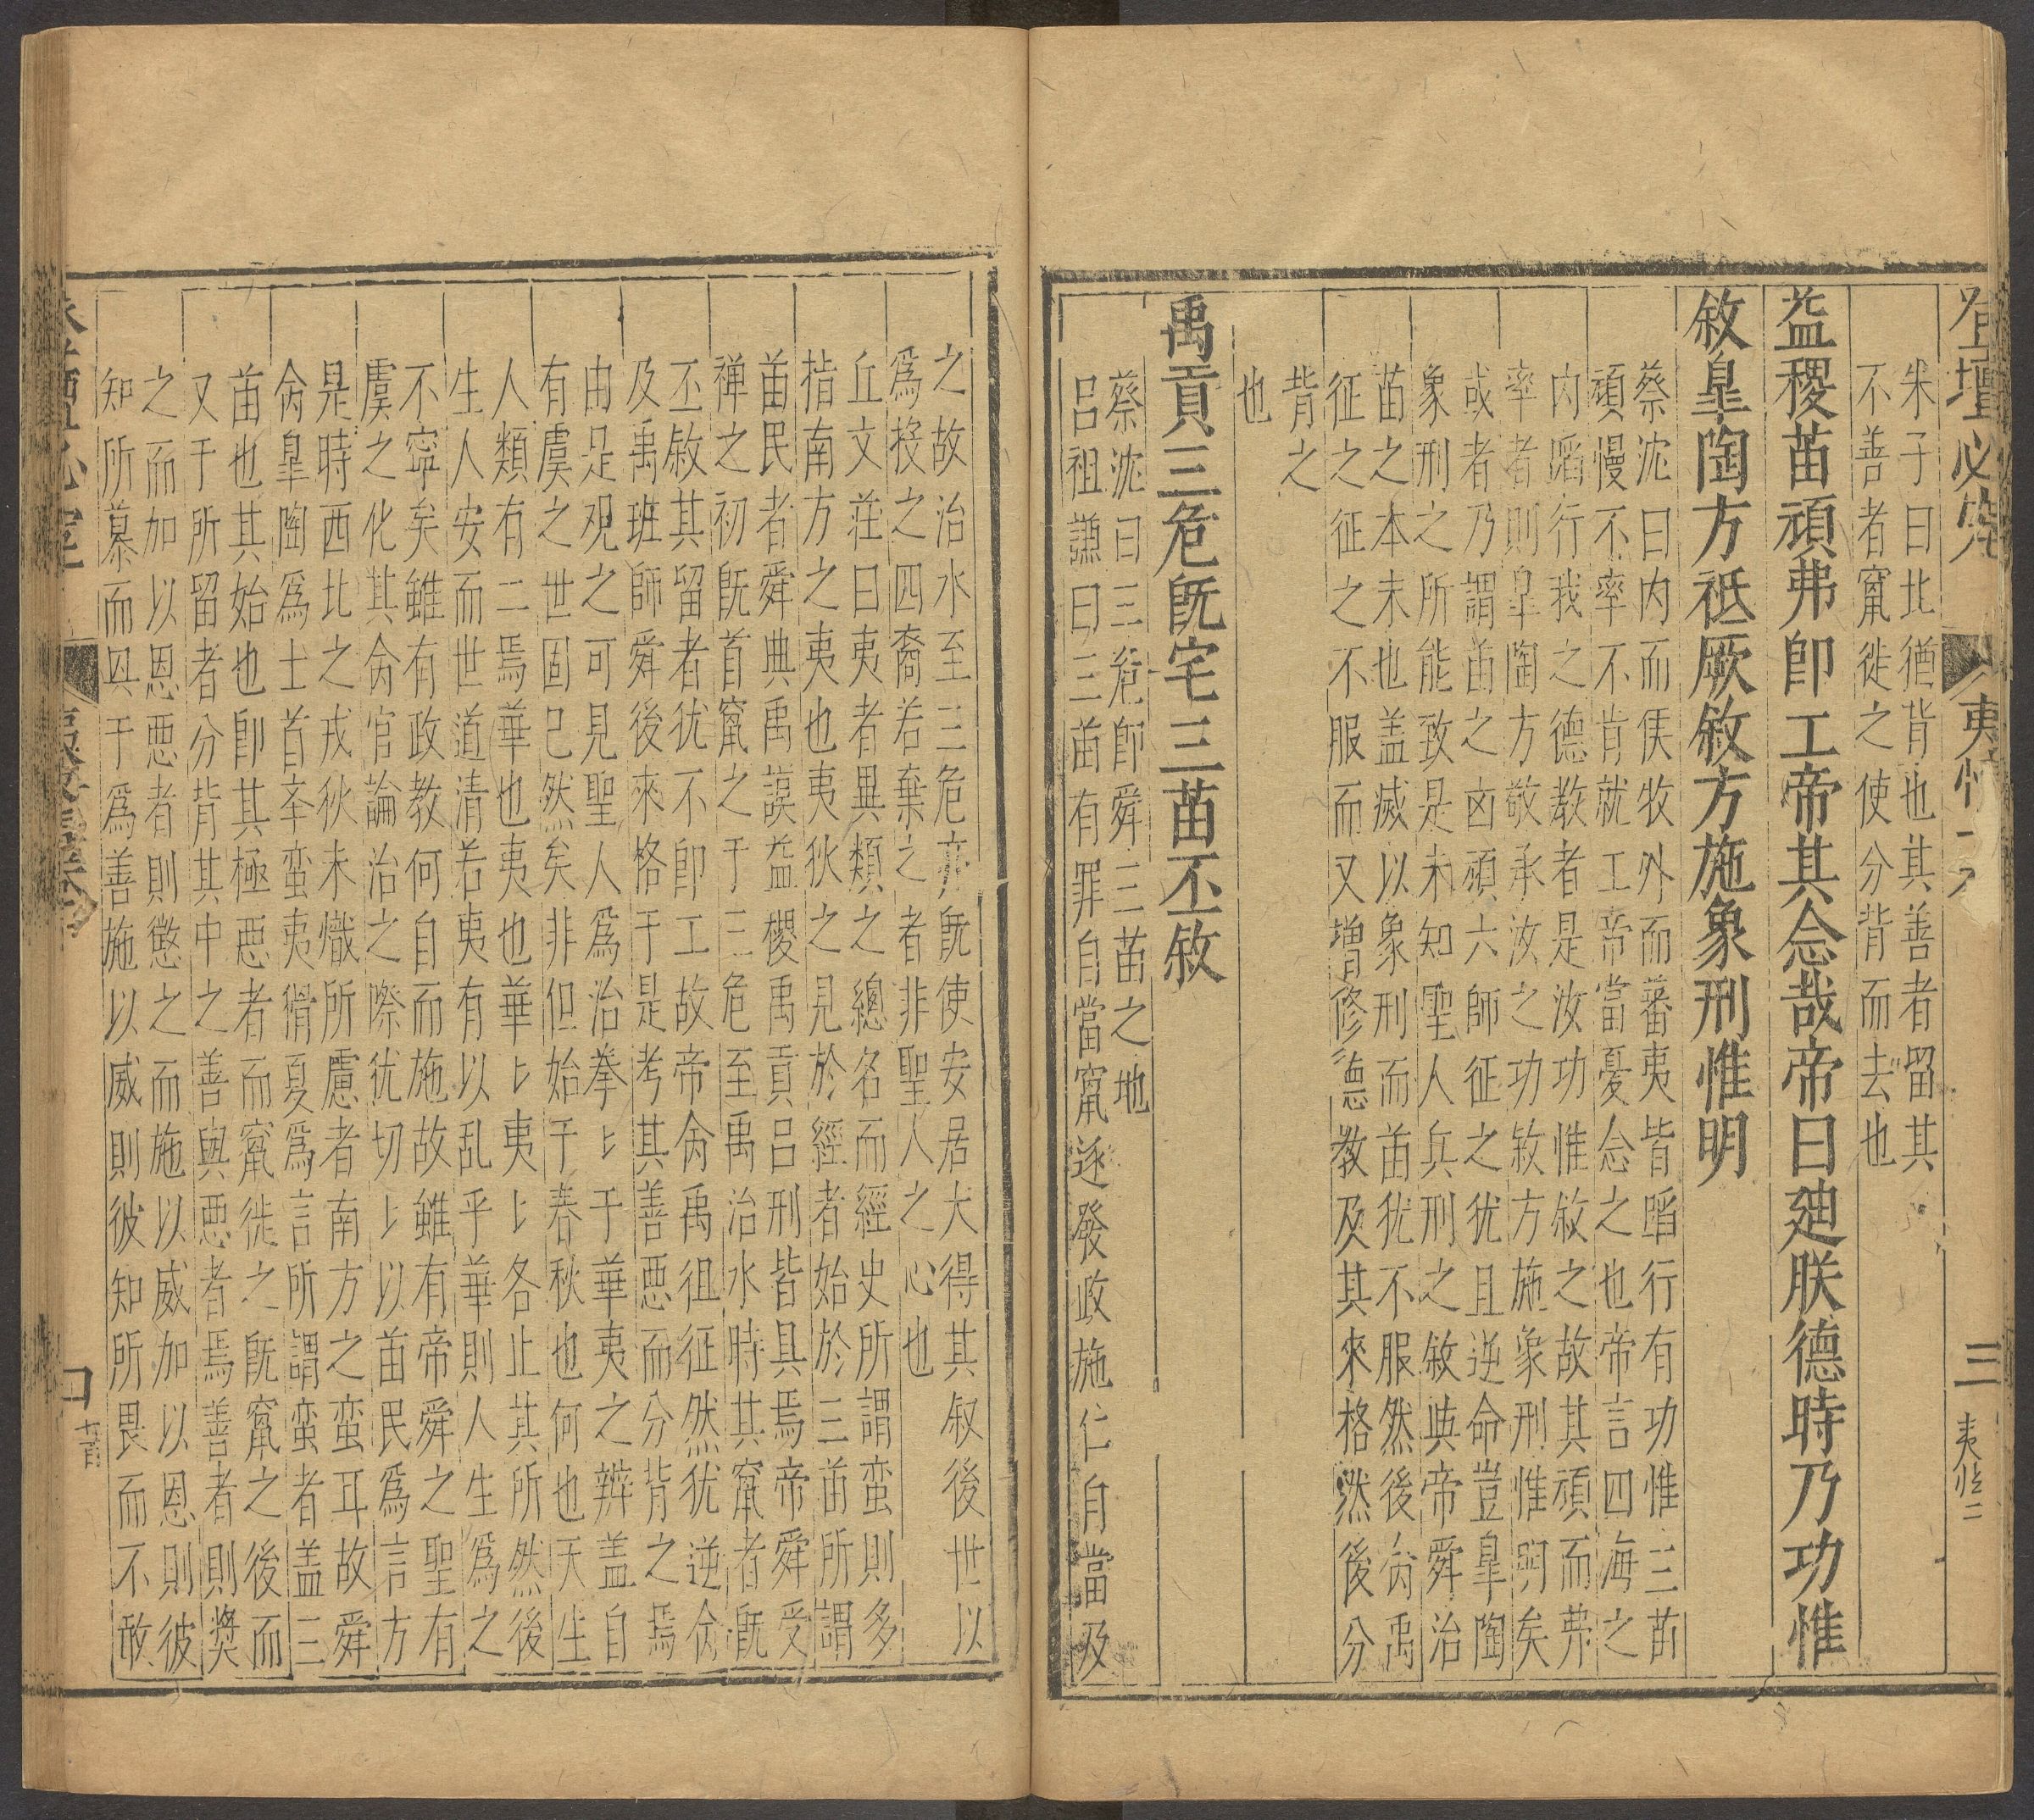 登壇必究 夷情 三 夷情二
朱子曰北猶背也其善者留其
不善者竄徙之使分背而去也
益稷苗頑弗卽工帝其念哉帝曰廸朕德時乃功惟
敘臯陶方祗厥敘方施象刑惟明
蔡沈曰內而侯牧外而蕃夷皆蹈行有功惟三苗
頑慢不率不肯就工帝當憂念之也帝言四海之
內蹈行我之德敎者是汝功惟敘之故其頑而弗
率者則臯陶方敬承汝之功敘方施象刑惟明矣
或者乃謂苗之凶頑六師征之犹且逆命豈臯陶
象刑之所能致是未知聖人兵刑之敘與帝舜治
苗之本末也盖威以象刑而苗犹不服然後命禹
征之征之不服而又增修德敎及其來格然後分
背之
也
禹貢三危旣宅三苗丕敘
蔡沈曰三危卽舜三苗之地
呂祖謙曰三苗有罪自當竄逐發政施仁自當及
之故治水至三危亦旣使安居大得其叙後世以
爲投之四裔若棄之者非聖人之心也
丘文莊曰夷者異類之總名而經史所謂蛮則多
指南方之夷也夷狄之見於經者始於三苗所謂
苗民者舜典禹謨益稷禹貢呂刑皆具焉帝舜受
禅之初旣首竄之于三危至禹治水時其竄者旣
丕敘其留者犹不卽工故帝命禹徂征然犹逆命
及禹班師舜後來格于是考其善惡而分背之焉
由是观之可見聖人爲治拳〻于華夷之辨盖自
有虞之世固已然矣非但始于春秋也何也天生
人類有二焉華也夷也華〻夷〻各止其所然後
生人安而世道清若夷有以乱乎華則人生爲之
不寧矣雖有政教何自而施故雖有帝舜之聖有
虞之化其命官論治之際犹切〻以苗民爲言方
是時西北之戎狄未熾所慮者南方之蛮耳故舜
命臯陶爲士首卒蛮夷猾夏爲言所謂蛮者盖三
苗也其始也卽其極惡者而竄徙之旣竄之後而
又于所留者分背其中之善與惡者焉善者則奬
之而加以恩惡者則懲之而施以威加以恩則彼
知所慕而𠔏于爲善施以威則彼知所畏而不敢